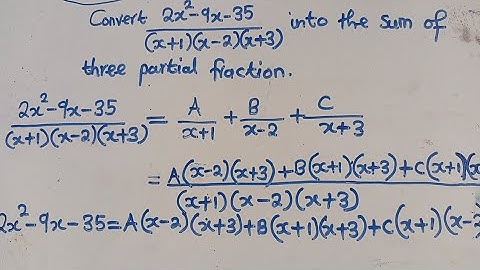 Convert (2x²-9x-35)/((x+1)(x-2)(x+3)) into the sum of
three partial fraction.
(2x²-9x-35)/((x+1)(x-2)(x+3)) = A/(x+1) + B/(x-2) + C/(x+3)
= (A(x-2)(x+3)+B(x+1)(x+3)+C(x+1)(x)/((x+1)(x-2)(x+3))
2x²-9x-35=A(x-2)(x+3)+B(x+1)(x+3)+C(x+1)(x-2